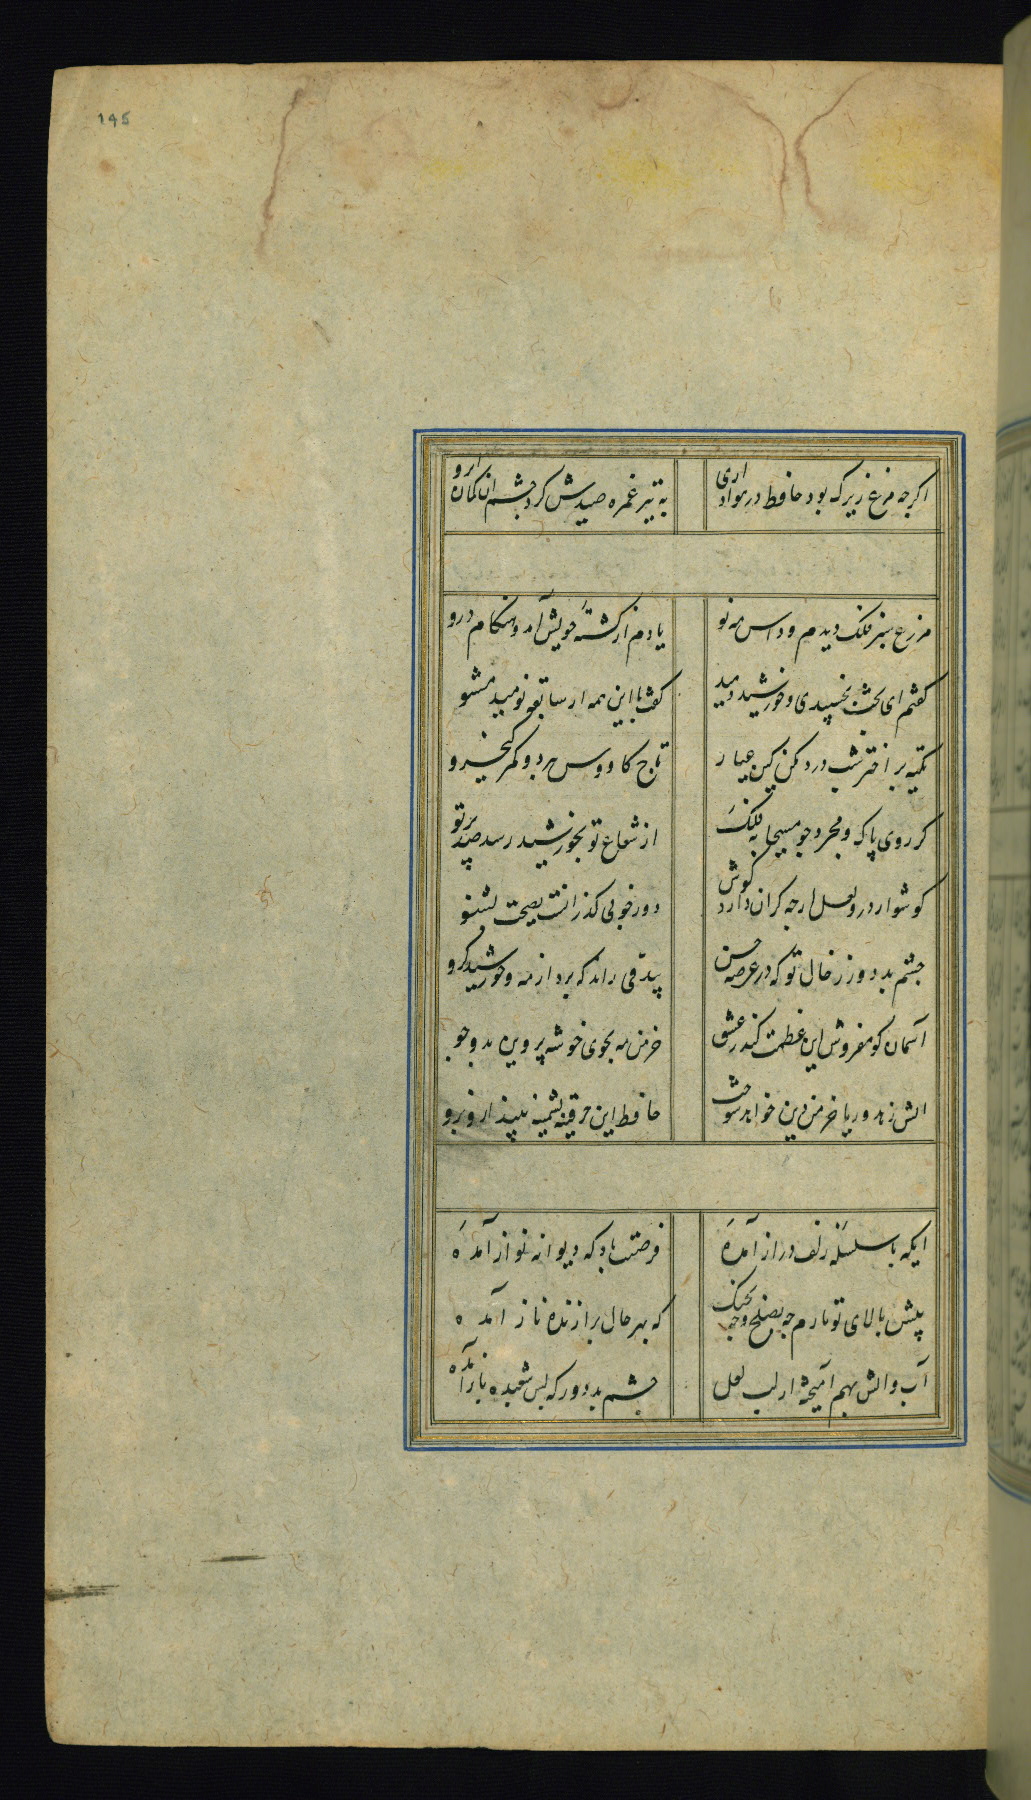 195
اکرچه مرغ زیرک بود حافظ در هواداری
به تیر غمزه صیدش کرد چشم ان کمان ابرو
مزرع سبز فلک دیدم و داس مه نو
یادم از کشته خویش آمد و هنکام درو
کفتم ای بخت بخسپیدی و خورشید دمید
کفت با این همه از سابقه نومید مشو
تکیه بر اختر شب درد مکن کین عیار
تاج کاووس ببرد و کمر کیخسرو
کر روی پاک و مجرد چو مسیحا به فلک
از شعاع تو بخورشید رسد صد پرتو
کوشوار در و لعل ارچه کران دارد کوش
دور خوبی کذرانست نصیحت بشنو
چشم بد دور ز خال تو که در عرصه حسن
بیدقی راند که برد از مه و خورشید کرو
آسمان کو مفروش این عظمت کندر عشق
خرمن مه بجوی خوشه پروین بدو جو
اتش زهد و ریا خرمن دین خواهد سوخت
حافظ این خرقه پشمینه بینداز و برو
ایکه با سلسله زلف دراز آمدهٔ
فرصتت باد که دیوانه نواز آمدهٔ
پیش بالای تو نازم چه بصلح و چه بجنک
که بهر حال برازنده ناز آمده
آب و اتش بهم آمیخته از لب لعل
چشم بد دور که بس شعبده باز آمده